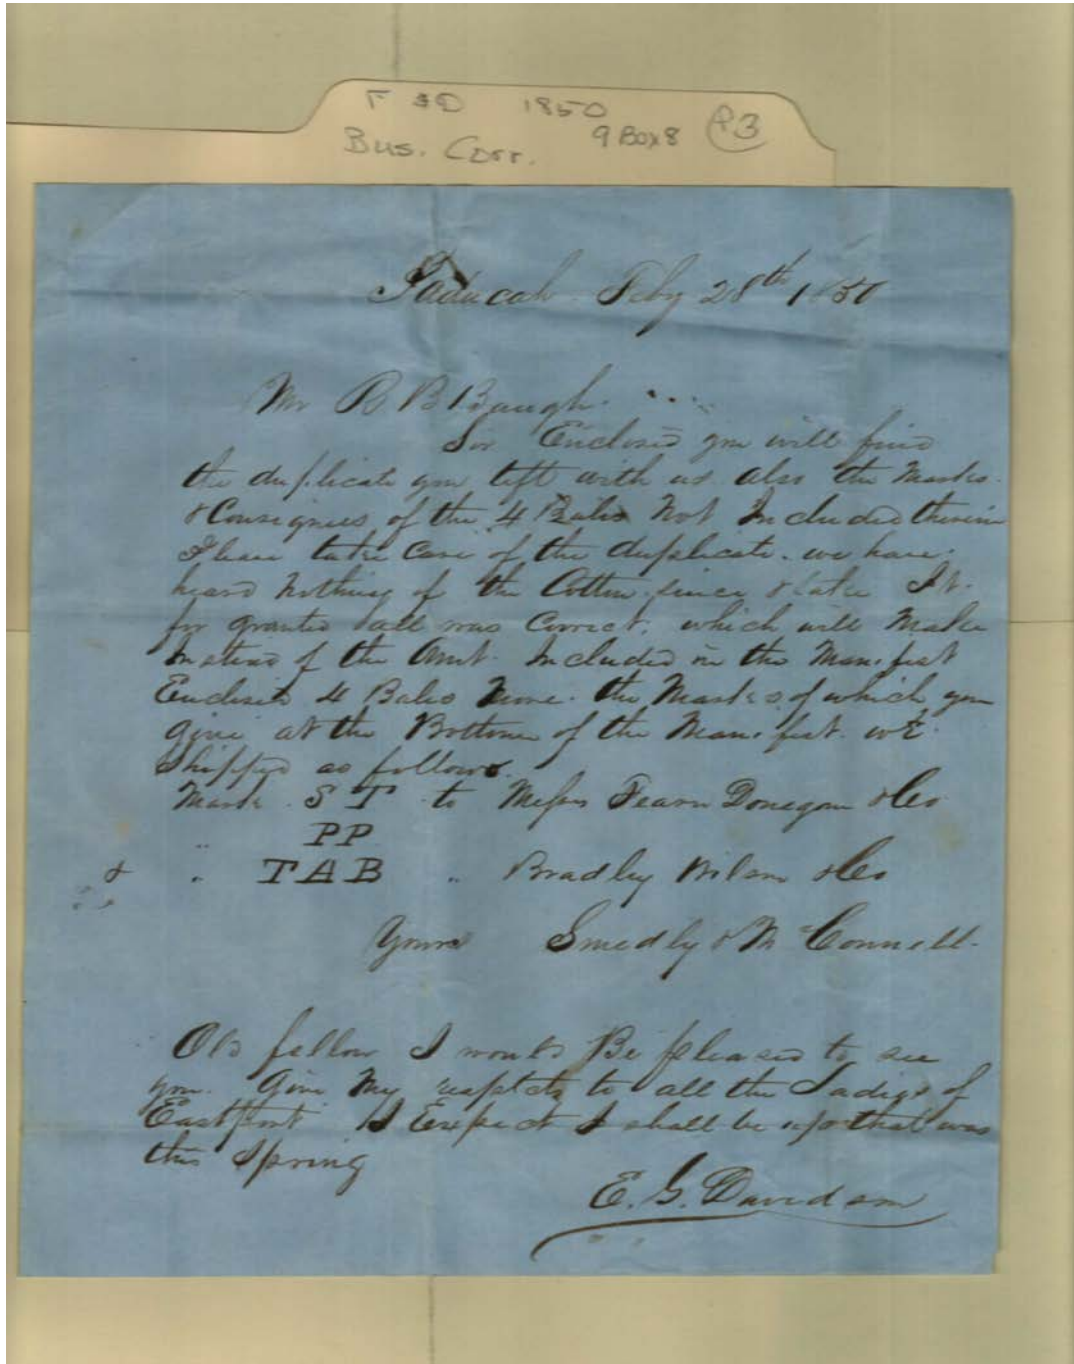 F & D 1850
9 Box 8 P3
Bus. Corr.
Paducah Feby 28th 1850
Mr R B Baugh.
Sir Enclosed you will find
the duplicate you left with us also the Marks.
& Consignees of the 4 Bales Not Included therein
Please take Care of the duplicate. we have.
heard Nothing of the Cotton since & take It.
for granted all was Correct. which will Make
Instead of the Amt. Included in the Manifest
Enclosed 4 Bales More. the Marks of which you
give at the Bottom of the Manifest. wE.
Shipped as follows.
Mark. S T to Messrs Fearn Donegan & Co
" PP
& " TAB " Bradley Wilson & Co
Yours Smedly & McConnell.
Old fellow I would Be pleased to see
you. Give My respects to all the Ladies of
Eastport I Expect I shall be up that was
this Spring
E. G. Davidson